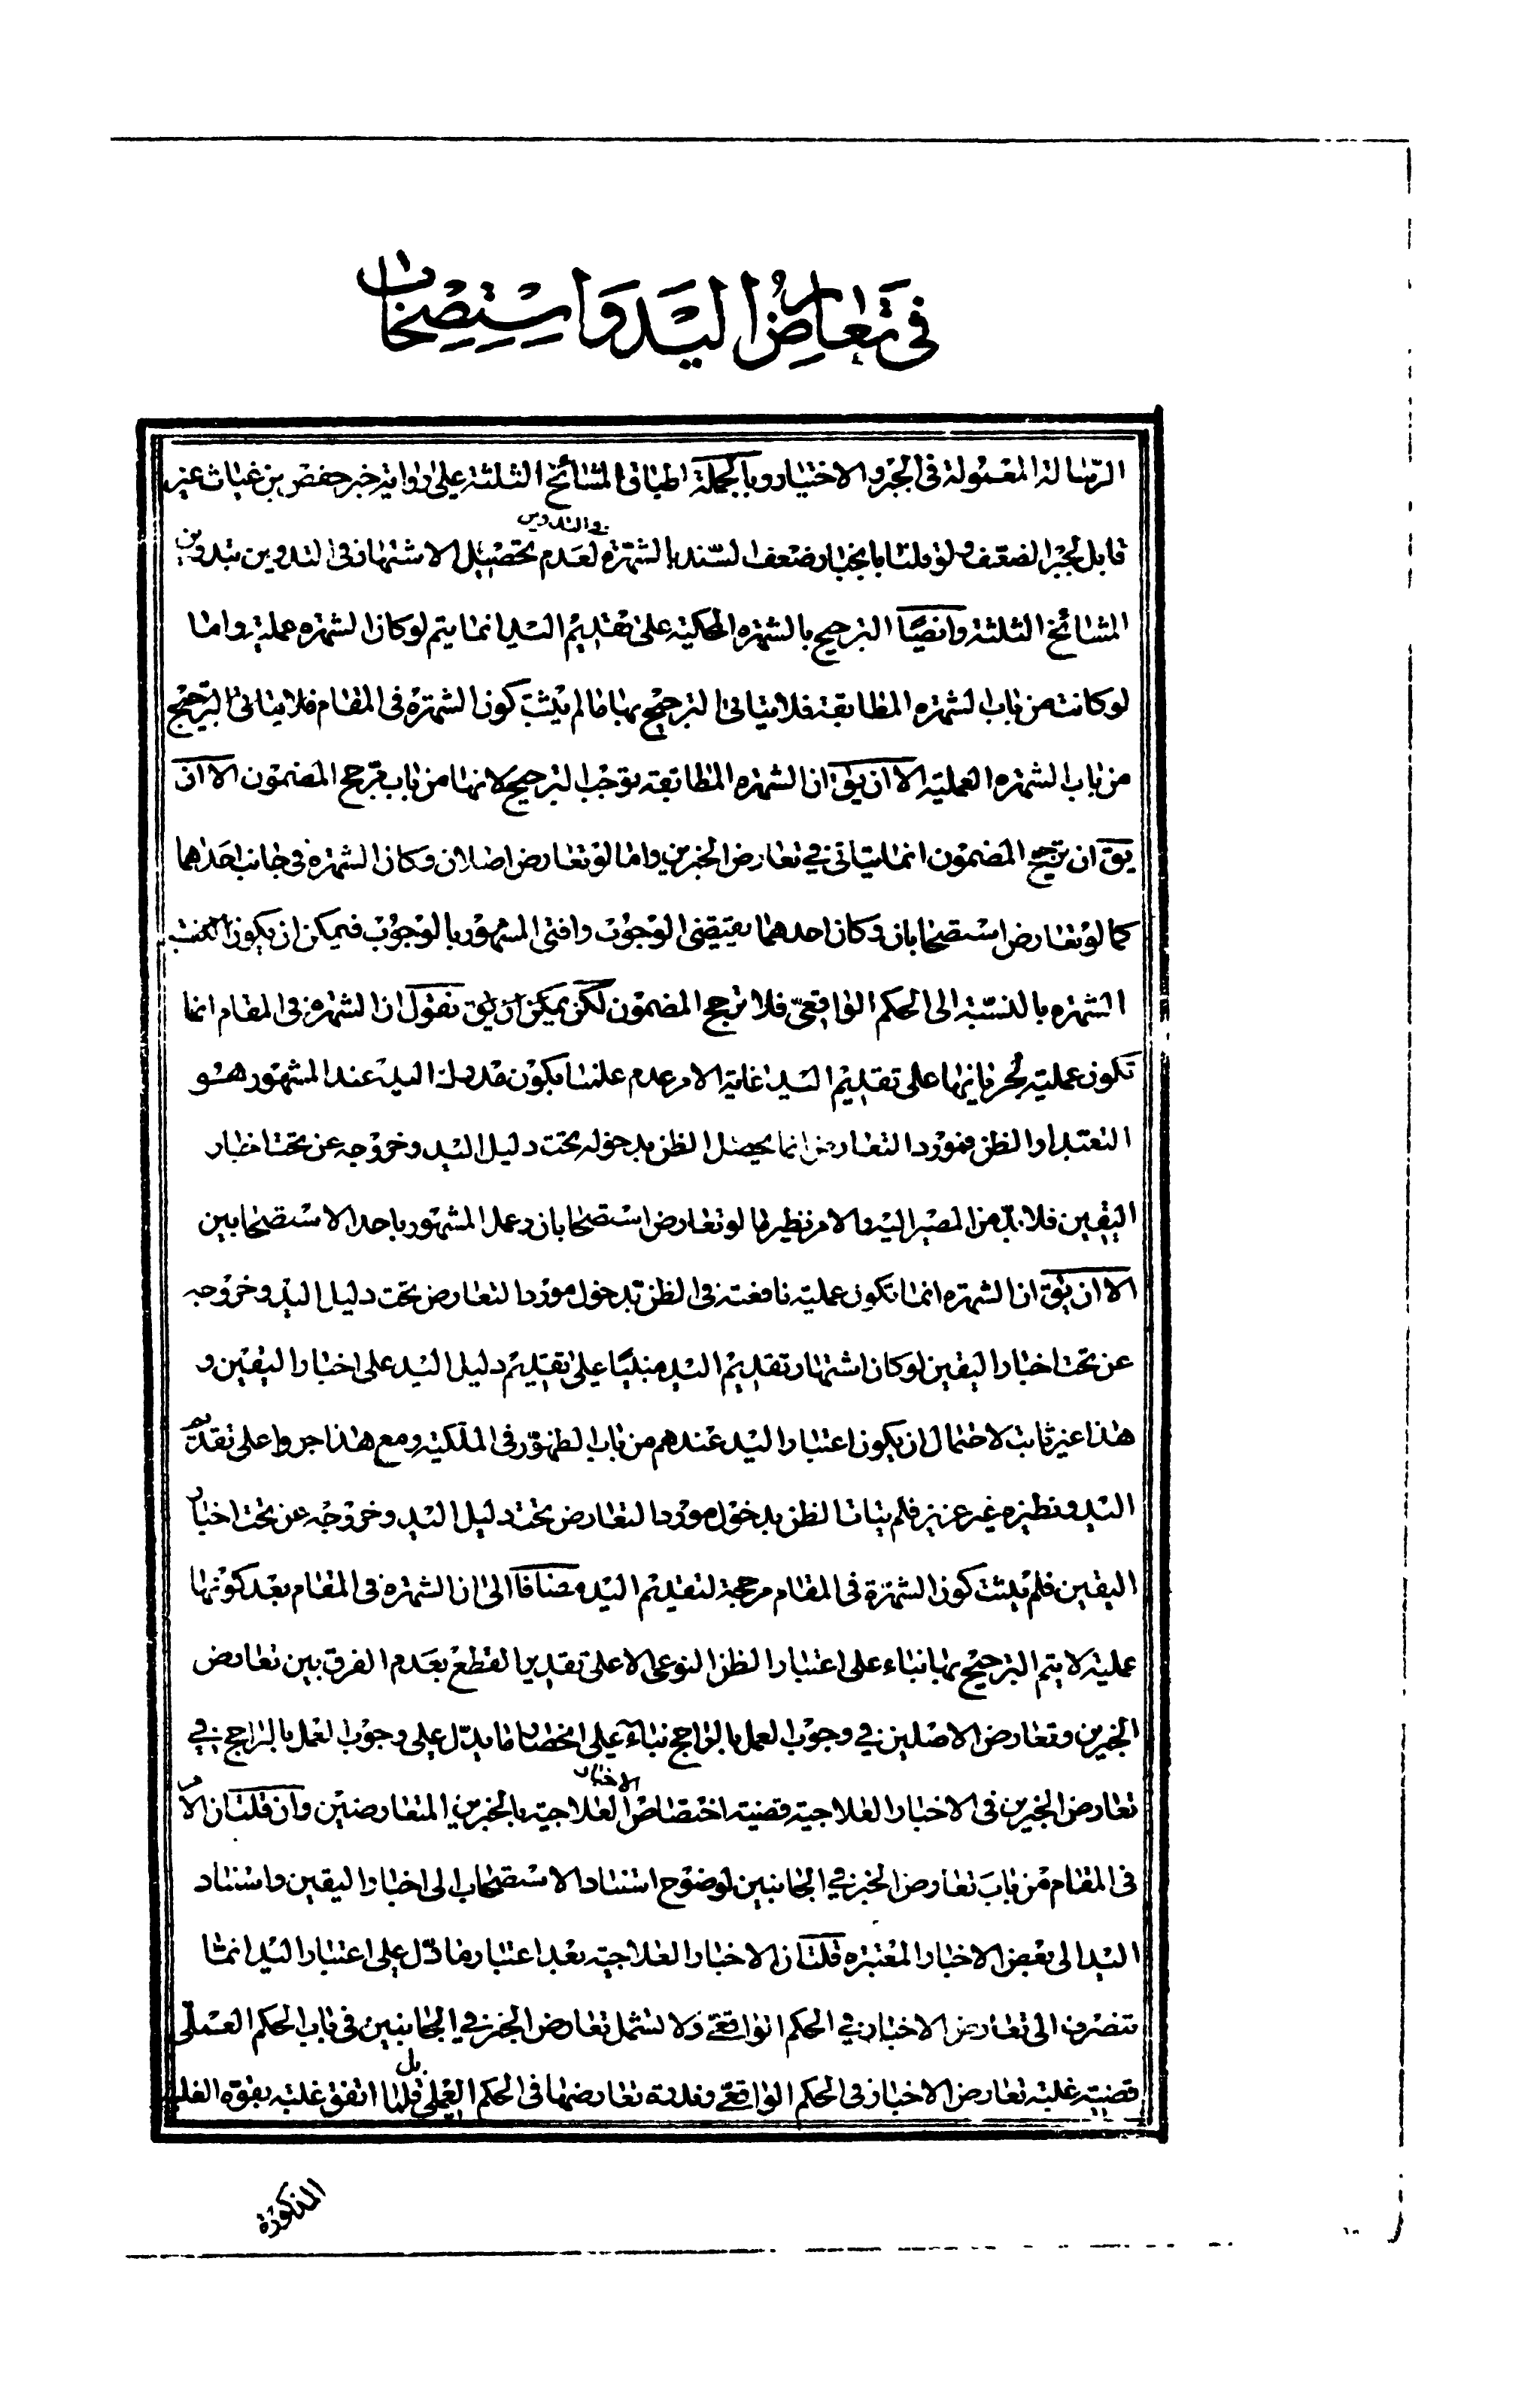 في تعارض اليد واستصحاب
الرسالة المعمولة في الجبر والاختيار وبالجملة اطباق المشائخ الثلثة على رواية خبر حفص بن غياث غير
قابل لجبر الضعف ولو قلنا بانجبار ضعف السند بالشهرة لعدم تحصيل الاشتهار في التدوين بتدوين
في التدوين
المشائخ الثلثة وايضا الترجيح بالشهرة المحكية على تقديم اليد انما يتم لو كان الشهرة عملية واما
لو كانت من باب الشهرة المطابقة فلا يتاتى الترجيح بها ما لم يثبت كون الشهرة في المقام فلا يتاتى الترجيح
من باب الشهرة العملية الا ان يق ان الشهرة المطابقة توجب الترجيح لانها من باب مرجح المضمون الا ان
يق ان ترجيح المضمون انما يتاتى في تعارض الخبرين واما لو تعارض اصلان وكان الشهرة في جانب احدهما
كما لو تعارض استصحابان وكان احدهما يقتضى الوجوب وافتى المشهور بالوجوب فيمكن ان يكون
الشهرة بالنسبة الى الحكم الواقعي فلا ترجح المضمون لكن يمكن ان يق نقول ان الشهرة في المقام انما
تكون عملية لجريانها على تقديم اليد غاية الامر عدم علمنا بكون مدرك اليد عند المشهور هو
التعبد او الظن فمورد التعارض انما يحصل الظن بدخوله تحت دليل اليد وخروجه عن تحت اخبار
اليقين فلا بد من المصير اليه والامر نظير ما لو تعارض استصحابان وعمل المشهور باحد الاستصحابين
الا ان يق ان الشهرة انما تكون عملية نافعة في الظن بدخول مورد التعارض تحت دليل اليد وخروجه
عن تحت اخبار اليقين لو كان اشتهار تقديم اليد مبنيا على تقديم دليل اليد على اخبار اليقين و
هذا غير ثابت لاحتمال ان يكون اعتبار اليد عندهم من باب الظهور في الملكية ومع هذا جروا على تقديم
اليد ونظيره غير عزيز فلم يتات الظن بدخول مورد التعارض تحت دليل اليد وخروجه عن تحت اخبار
اليقين فلم يثبت كون الشهرة في المقام مرجحة لتقديم اليد مضافا الى ان الشهرة في المقام بعد كونها
عملية لا يتم الترجيح بها بناء على اعتبار الظن النوعى الا على تقدير القطع بعدم الفرق بين تعارض
الخبرين وتعارض الاصلين في وجوب العمل بالراجح بناء على انحصار ما يدل على وجوب العمل بالراجح في
تعارض الخبرين في الاخبار العلاجية قضية اختصاص العلاجية بالخبرين المتعارضين وان قلت ان الامر
الاخبار
في المقام من باب تعارض الخبر في الجانبين لوضوح استناد الاستصحاب الى اخبار اليقين واستناد
اليد الى بعض الاخبار المعتبرة قلت ان الاخبار العلاجية بعد اعتبار ما دل على اعتبار اليد انما
تنصرف الى تعارض الاخبار في الحكم الواقعي ولا تشمل تعارض الخبر في الجانبين في باب الحكم العملى
قضية غلبة تعارض الاخبار في الحكم الواقعي وندرة تعارضها في الحكم العملي بل قلما اتفق غلبة بقوة الغلبة
المذكورة